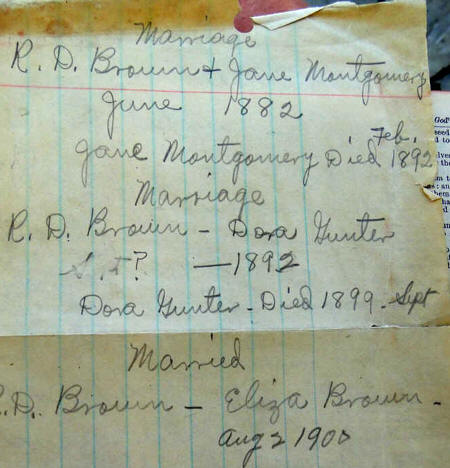 Marriage
R. D. Brown + Jane Montgomery
June 1882
Jane Montgomery Died Feb. 1892
Marriage
R. D. Brown - Dora Gunter
? — 1892
Dora Gunter - Died 1899 - Sept
Married
R.D. Brown - Eliza Brown -
Aug 2 1900
God'